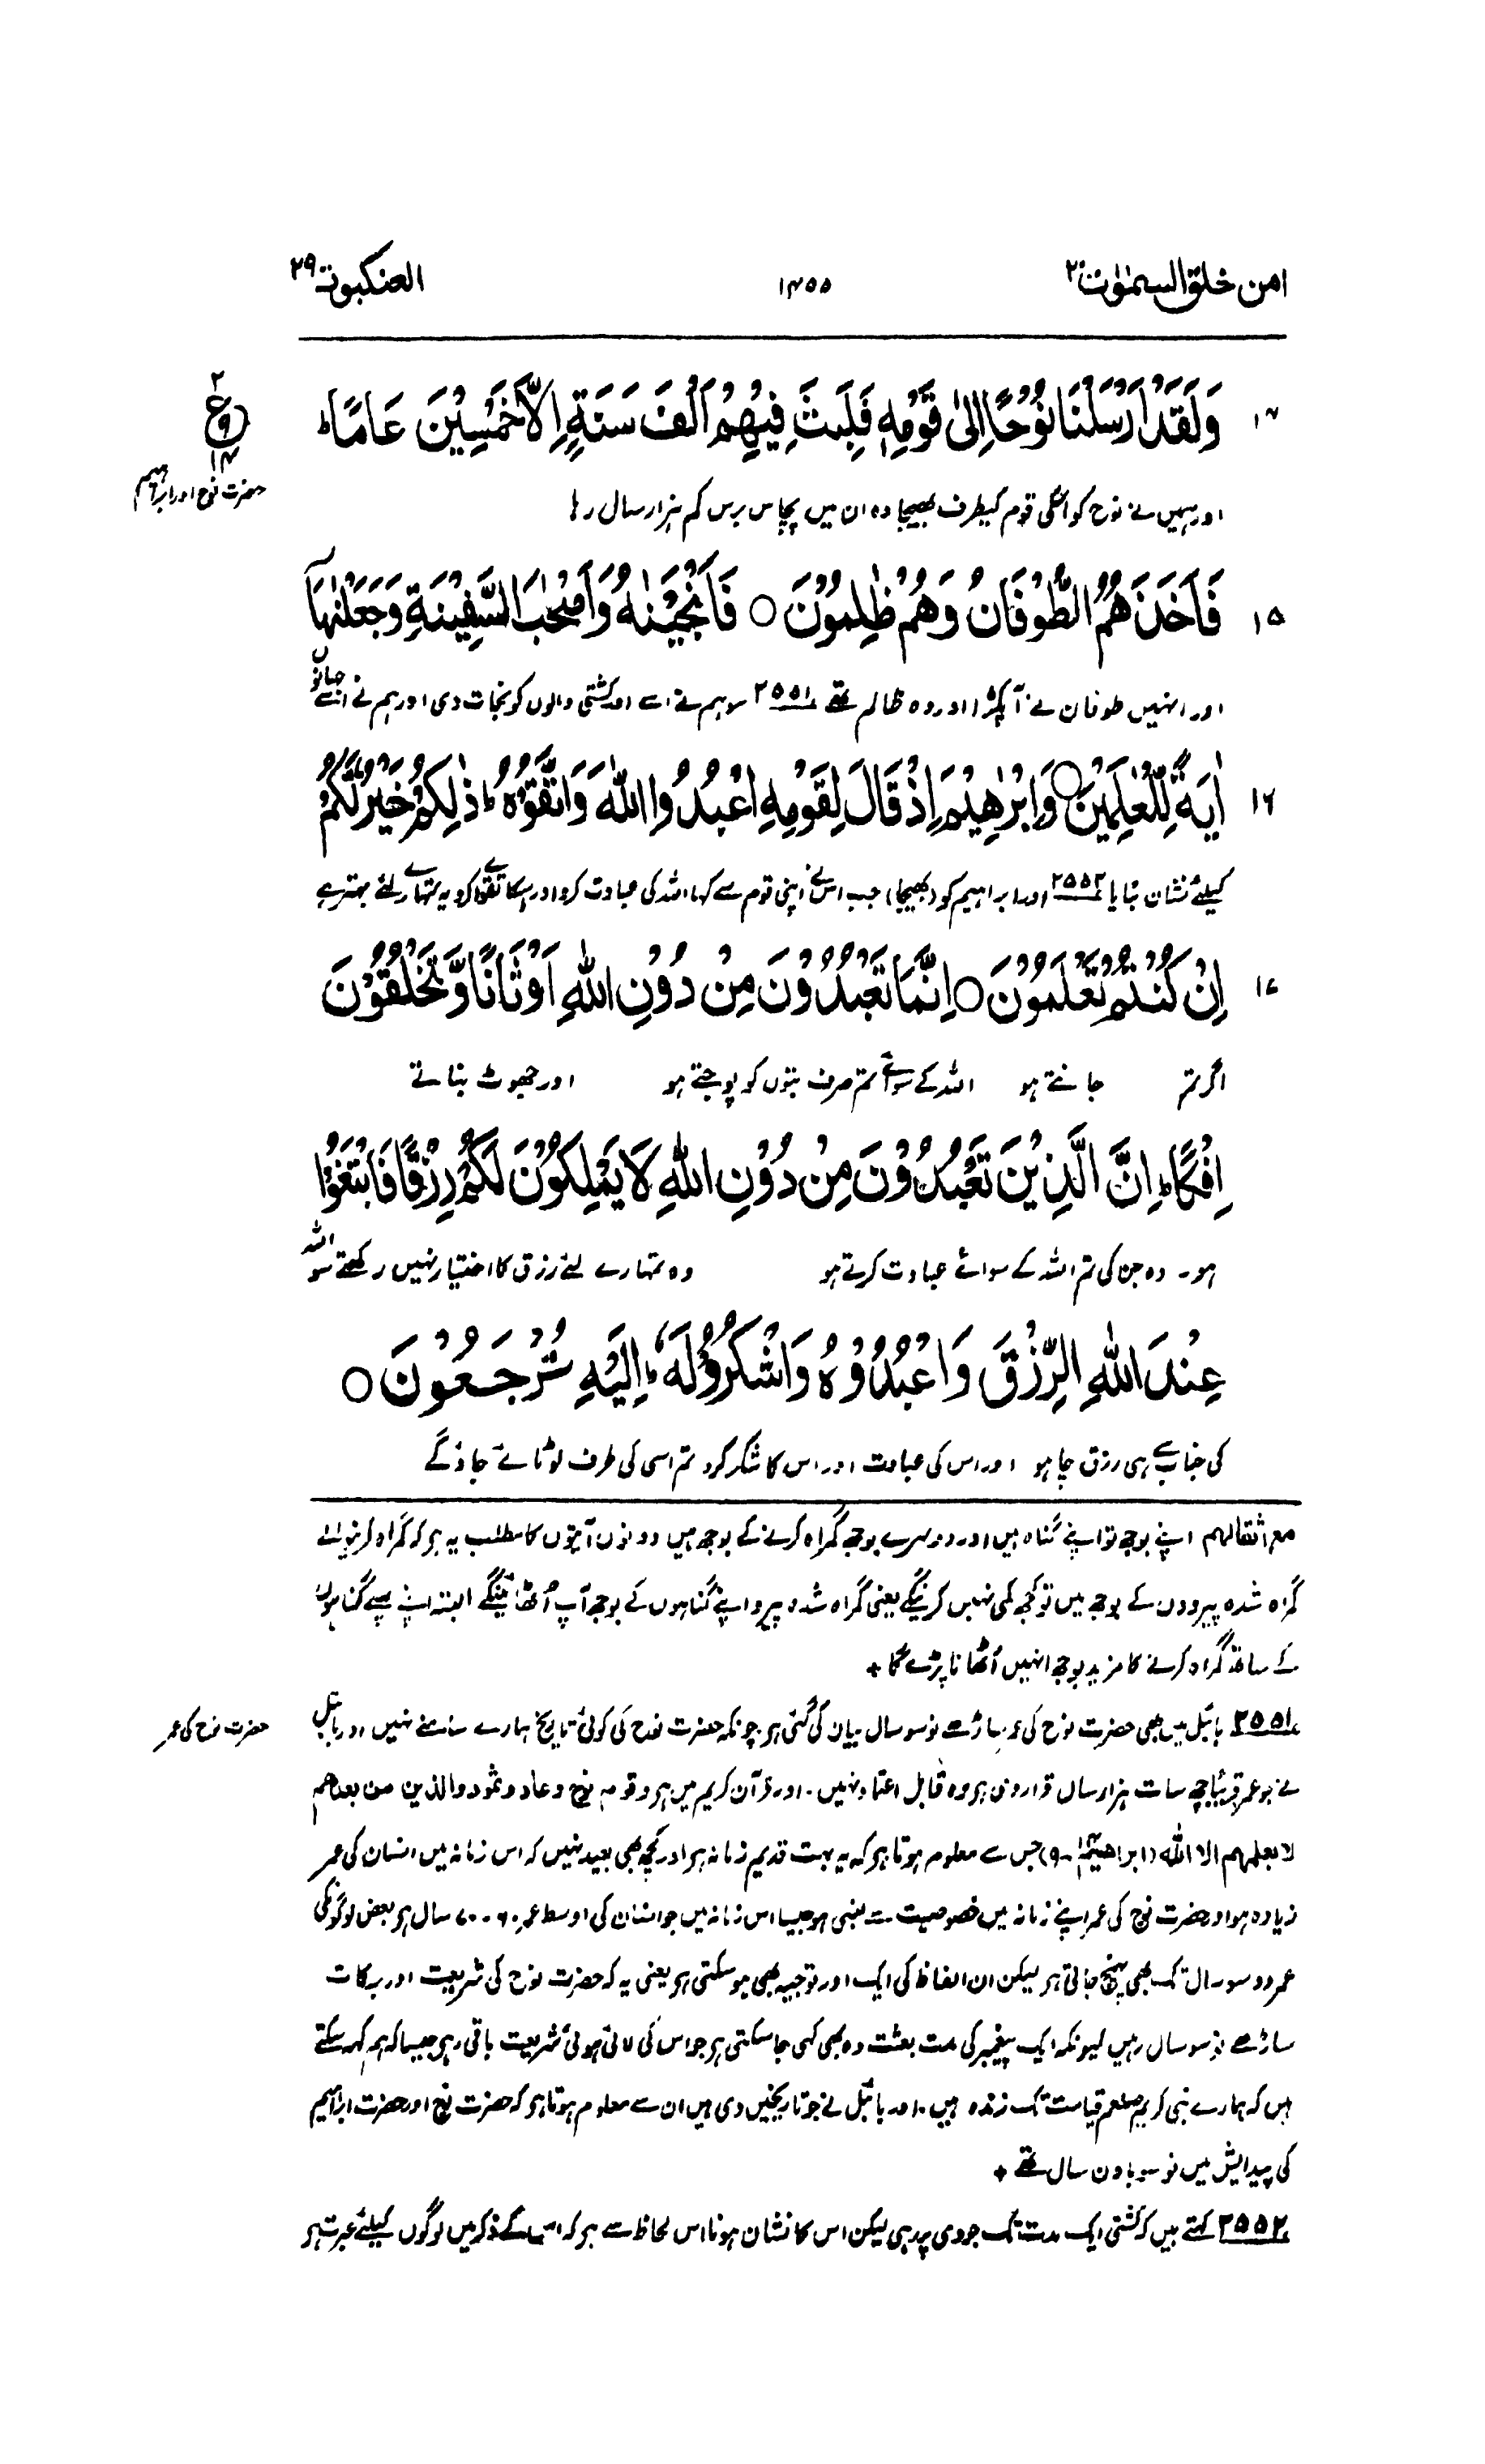 امن خلق السمٰوٰت ٢٠
١٤٥٥
العنکبوت ٢٩
١٤ وَلَقَدْ اَرْسَلْنَا نُوْحًا اِلٰى قَوْمِهٖ فَلَبِثَ فِيْهِمْ اَلْفَ سَنَةٍ اِلَّا خَمْسِيْنَ عَامًا ؕ
٢
ع
١٤
حضرت نوح اور ابراہیم
اور ہمیں نے نوح کو اسکی قوم کیطرف بھیجا وہ ان میں پچاس برس کم ہزار سال رہا
١٥ فَاَخَذَهُمُ الطُّوْفَانُ وَهُمْ ظٰلِمُوْنَ ○ فَاَنْجَيْنٰهُ وَاَصْحٰبَ السَّفِيْنَةِ وَجَعَلْنٰهَاۤ
اور انہیں طوفان نے آ پکڑا اور وہ ظالم تھے ٢٥٥١ سو ہم نے اسے اور کشتی والوں کو نجات دی اور ہم نے اسے جہانوں
١٦ اٰيَةً لِّلْعٰلَمِيْنَ ○ وَاِبْرٰهِيْمَ اِذْ قَالَ لِقَوْمِهِ اعْبُدُوا اللّٰهَ وَاتَّقُوْهُ ؕ ذٰلِكُمْ خَيْرٌ لَّكُمْ
کیلئے نشان بنایا ٢٥٥٢ اور ابراہیم کو (بھیجا) جب اس نے اپنی قوم سے کہا اللہ کی عبادت کرو اور اسکا تقویٰ کرو یہ تمہارے لئے بہتر ہے
١٧ اِنْ كُنْتُمْ تَعْلَمُوْنَ ○ اِنَّمَا تَعْبُدُوْنَ مِنْ دُوْنِ اللّٰهِ اَوْثَانًا وَّتَخْلُقُوْنَ
اگر تم جانتے ہو اللہ کے سوائے تم صرف بتوں کو پوجتے ہو اور جھوٹ بناتے
اِفْكًا ؕ اِنَّ الَّذِيْنَ تَعْبُدُوْنَ مِنْ دُوْنِ اللّٰهِ لَا يَمْلِكُوْنَ لَكُمْ رِزْقًا فَابْتَغُوْا
ہو۔ وہ جن کی تم اللہ کے سوائے عبادت کرتے ہو وہ تمہارے لئے رزق کا اختیار نہیں رکھتے سو اللہ
عِنْدَ اللّٰهِ الرِّزْقَ وَاعْبُدُوْهُ وَاشْكُرُوْا لَهٗ ؕ اِلَيْهِ تُرْجَعُوْنَ ○
کی جناب سے ہی رزق چاہو اور اس کی عبادت اور اس کا شکر کرو تم اسی کی طرف لوٹائے جاؤ گے
مع اثقالہم اپنے بوجھ تو اپنے گناہ ہیں اور دوسرے بوجھ گمراہ کرنے کے بوجھ ہیں دونوں آیتوں کا مطلب یہ ہے کہ گمراہ کرنیوالے
گمراہ شدہ پیرووں کے بوجھ میں تو کچھ کمی نہیں کرینگے یعنی گمراہ شدہ پیرو اپنے گناہوں کے بوجھ آپ اُٹھائینگے البتہ اپنے گناہوں
کے ساتھ گمراہ کرنے کا مزید بوجھ انہیں اُٹھانا پڑے گا +
حضرت نوح کی عمر
٢٥٥١ بائبل میں بھی حضرت نوح کی عمر ساڑھے نو سو سال بیان کی گئی ہے چونکہ حضرت نوح کی کوئی تاریخ ہمارے سامنے نہیں اور بائبل
نے جو عمر قریباً چھ سات ہزار سال قرار دی ہے وہ قابل اعتماد نہیں۔ اور قرآن کریم میں ہے وقوم نوح وعاد وثمود والذین من بعدھم
لا یعلمہم الا اللّٰہ (ابراھیم ١٤-٩) جس سے معلوم ہوتا ہے کہ یہ بہت قدیم زمانہ ہے اور کچھ بھی بعید نہیں کہ اس زمانہ میں انسان کی عمر
زیادہ ہو اور حضرت نوح کی عمر اپنے زمانہ میں خصوصیت سے لمبی ہو جیسا اس زمانہ میں جو انسان کی اوسط عمر ٦٠-٧٠ سال ہے بعض لوگونکی
عمر دو سو سال تک بھی پہنچ جاتی ہے لیکن ان الفاظ کی ایک اور توجیہ بھی ہو سکتی ہے یعنی یہ کہ حضرت نوح کی شریعت اور برکات
ساڑھے نو سو سال رہیں کیونکہ ایک پیغمبر کی مدت بعثت وہ بھی کہی جا سکتی ہے جو اس کی لائی ہوئی شریعت باقی رہے جیسا کہ ہم کہہ سکتے
ہیں کہ ہمارے نبی کریم صلعم قیامت تک زندہ ہیں۔ اور بائبل نے جو تاریخیں دی ہیں ان سے معلوم ہوتا ہے کہ حضرت نوح اور حضرت ابراہیم
کی پیدایش میں نو سو باون سال تھے +
٢٥٥٢ کہتے ہیں کہ کشتی ایک مدت تک جودی پر رہی لیکن اس کا نشان ہونا اس لحاظ سے ہے کہ اس کے ذکر میں لوگوں کیلئے عبرت ہے